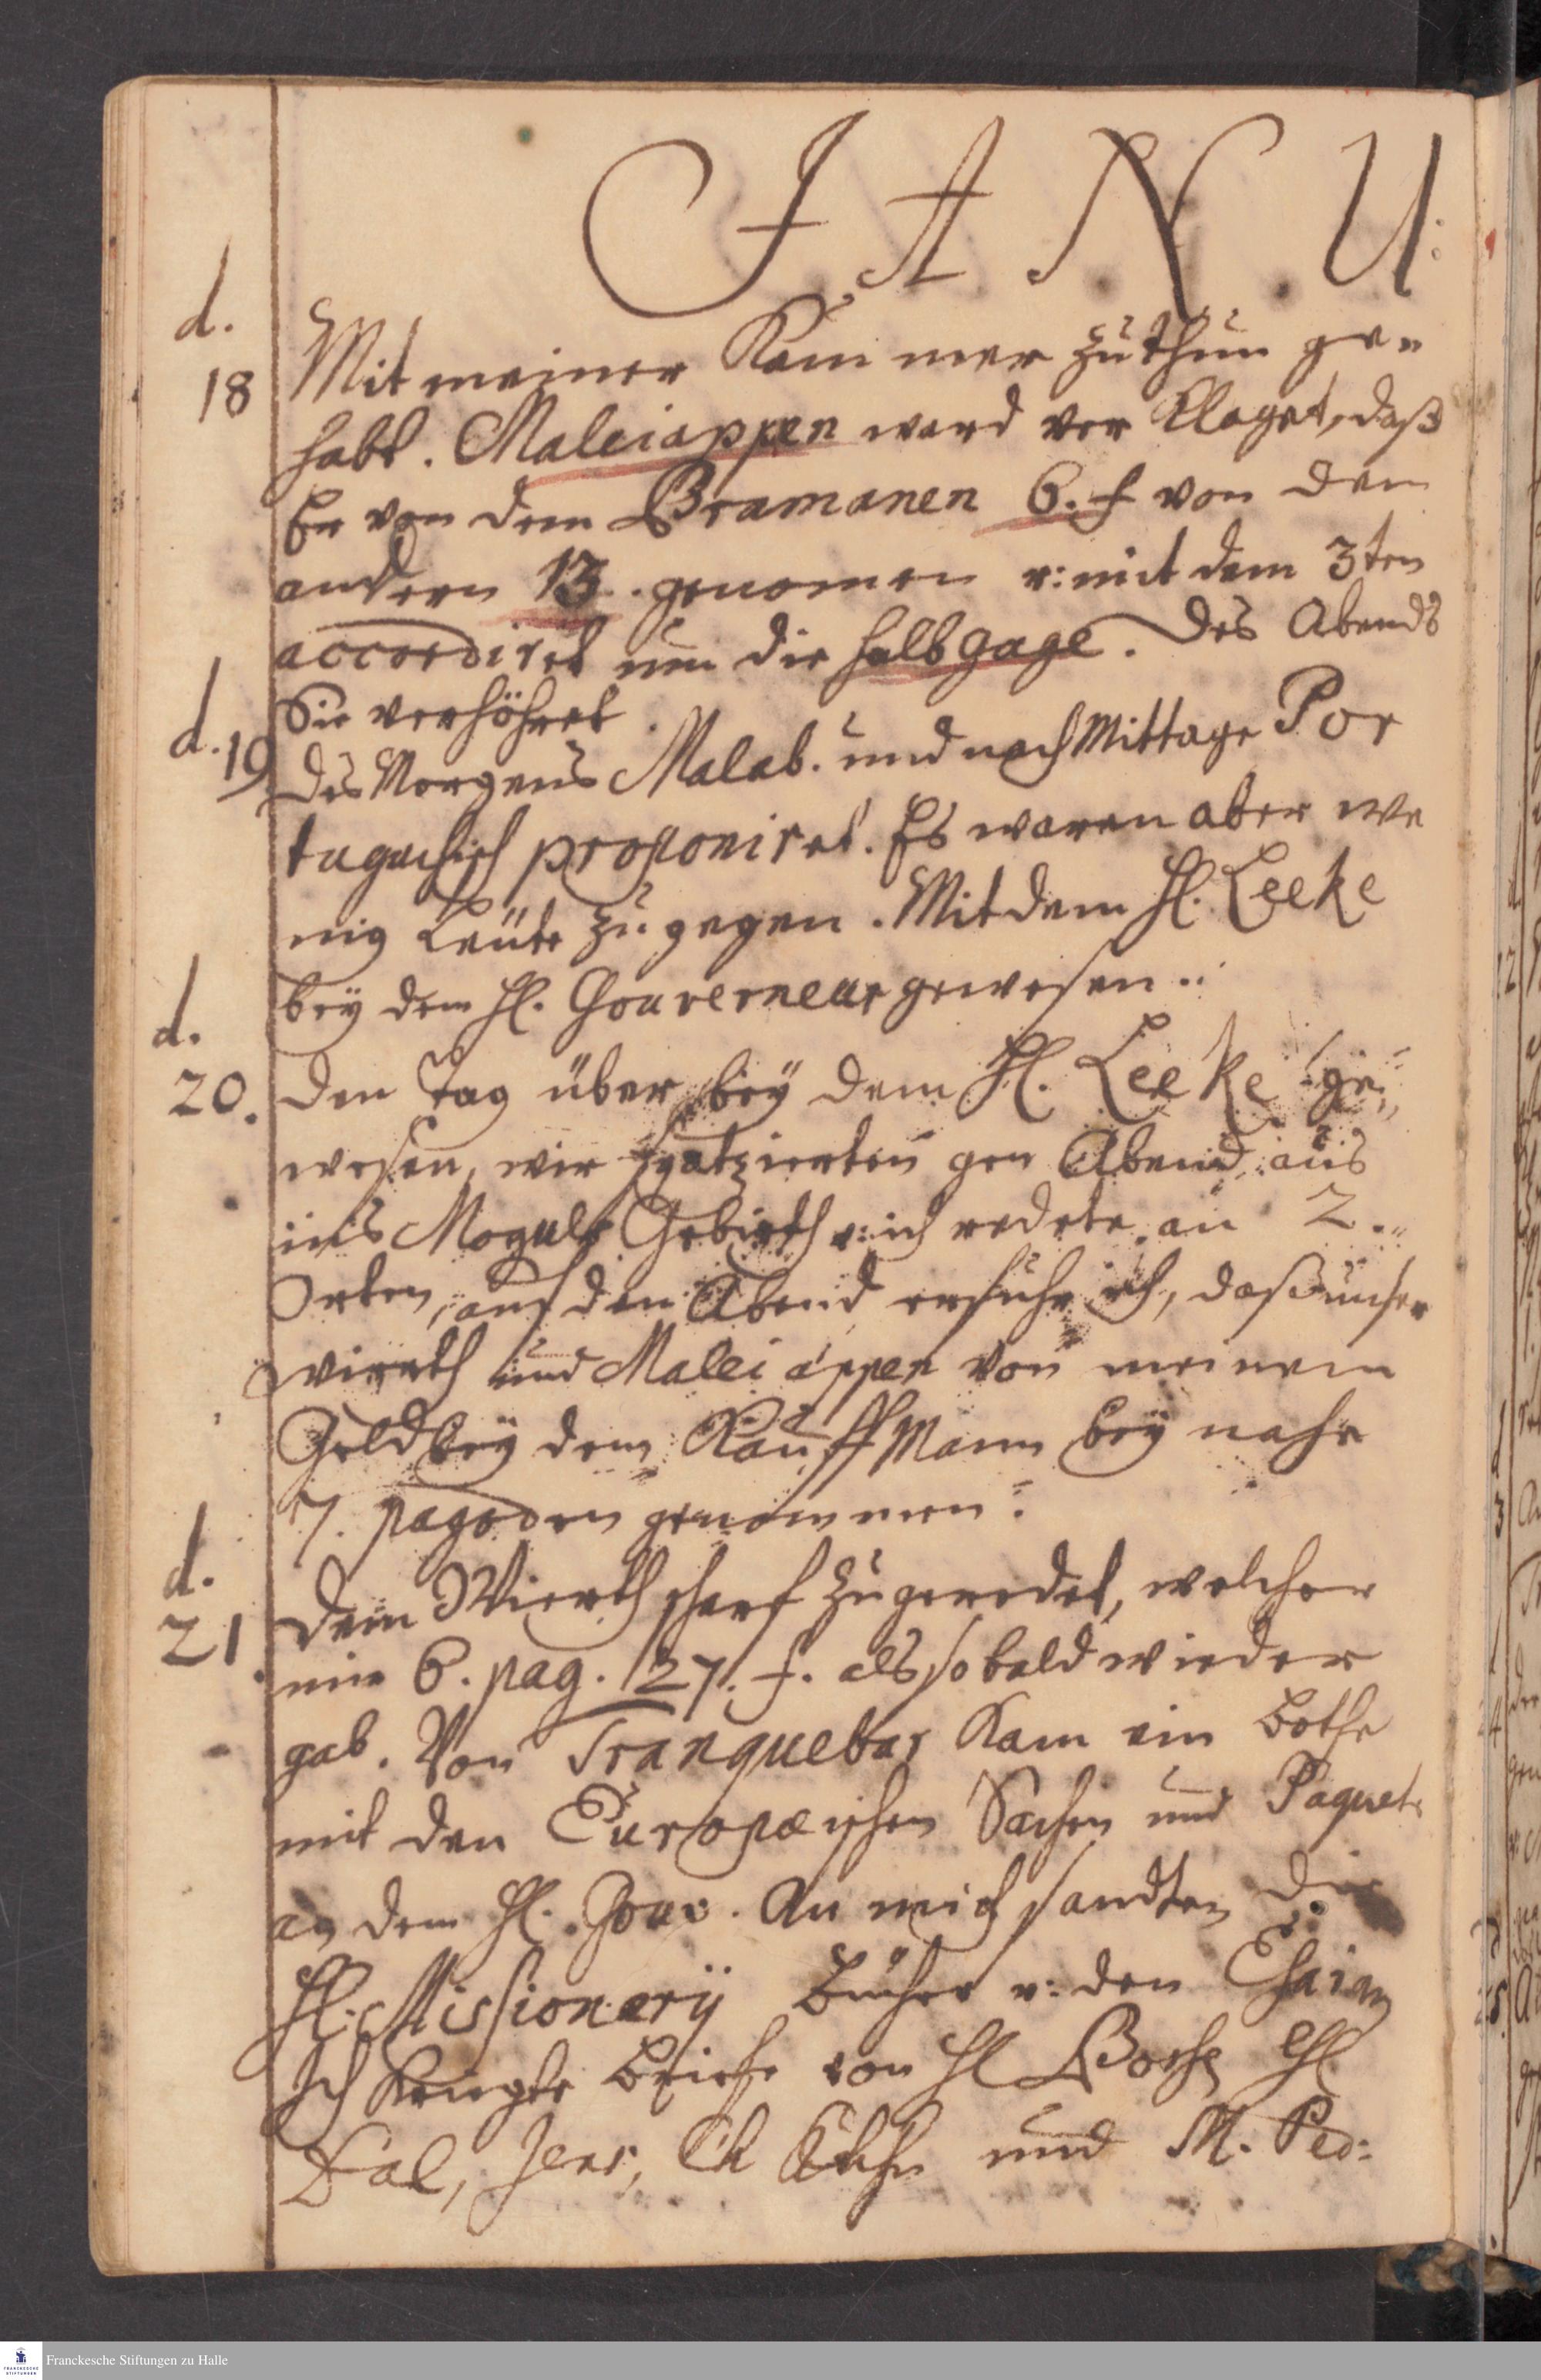 J A N U:
d.
18
Mit meiner Kam mer zu thun ge=
habt. Maleiappen ward ver klaget, daß
Er von dem Bramanen 6. f von dem
andern 13. genomen u: mit dem 3ten
accordiret um die halb gage. Des Abends
Sie verhöhret.
d. 19
Des Morgens Malab. und nach Mittage Por
tugisisch proponiret. Es waren aber we
nig Leute zu gegen. Mit dem H. Leeke
bey dem H. Gouverneur gewesen.
d.
20.
Den Tag über bey dem H. Leeke ge=
wesen, wir spatzierten gen Abend aus
ins Moguls Gebieth u: ich redete an 2.
Orten, auf den Abend erfuhr ich, daß unser
wirth und Maleiappen von meinem
Geld bey dem Kauff Mann bey nahe
7. pagoden genommen.
d.
21
Dem Wierth scharf zugeredet, welcher
mir 6. pag. 27. f. als so bald wieder
gab. Von Tranquebar kam ein Bothe
mit den Europæischen Sachen und Paquete
an dem H. Gouv. An mich sandten die
H. Missionarij Bücher u: den
Ich kriegte Briefe von H
Dal, Jens, und M. Ped:
Franckesche Stiftungen zu Halle